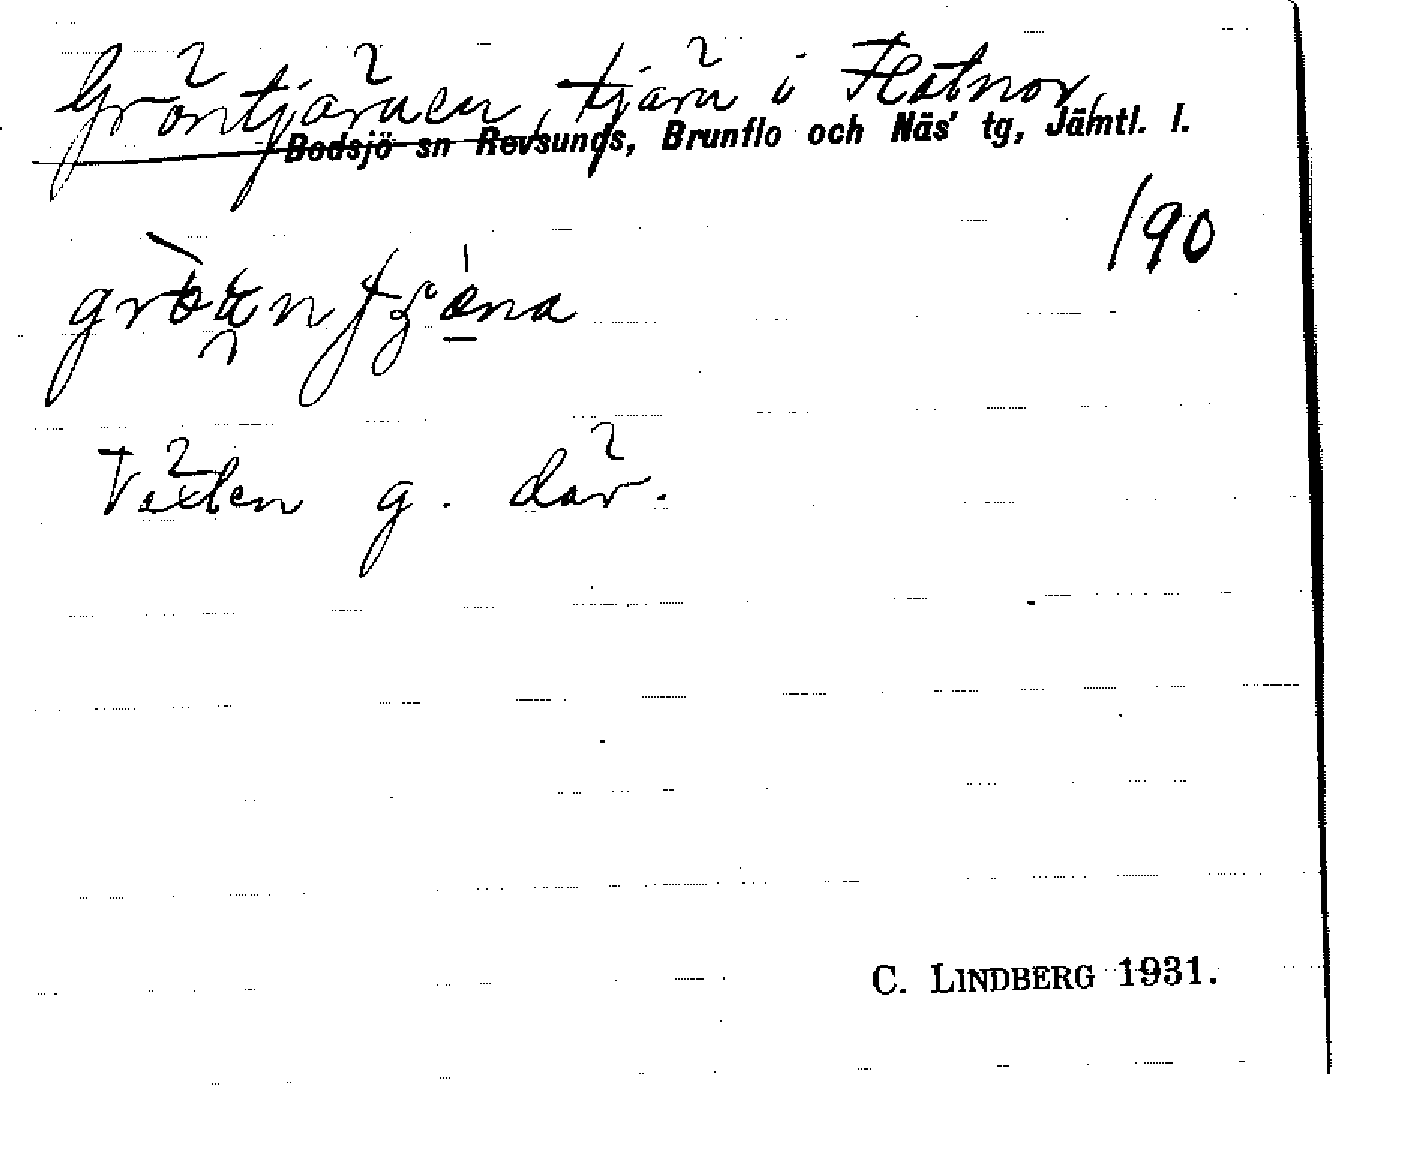 Gröntjärnen, tjärn i Flatnor,
Bodsjö sn Revsunds, Brunflo och Näs' tg, Jämtl. l.
190
g. där.
C. LINDBERG 1931.